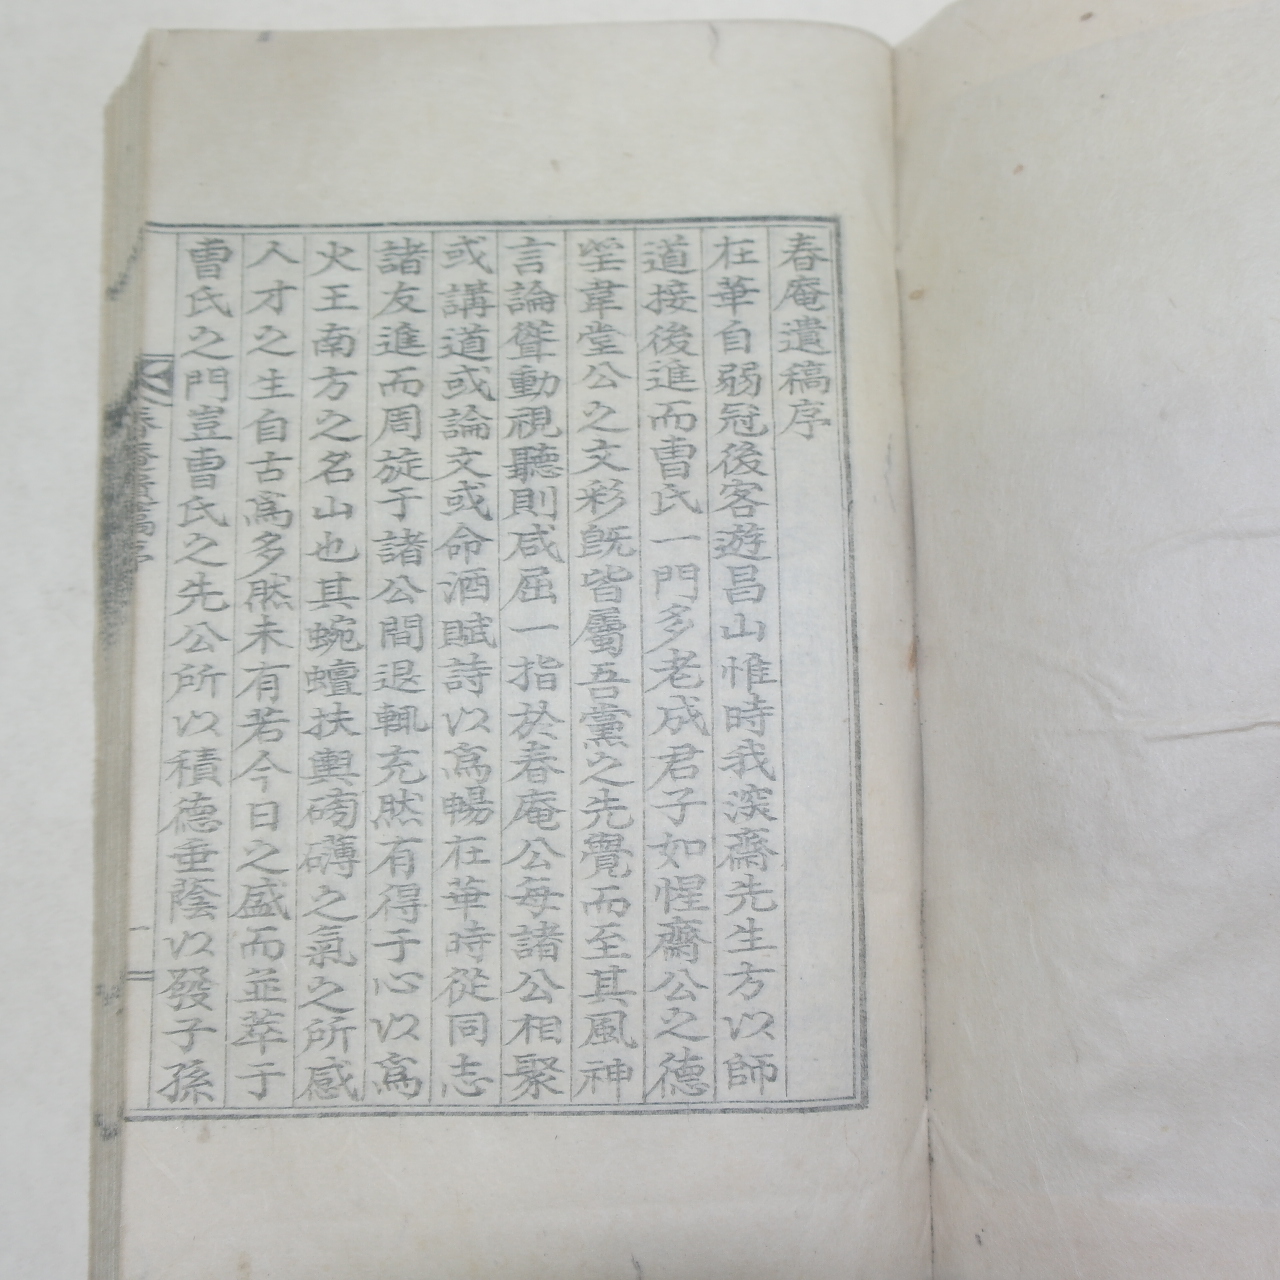 春庵遺稿序
在華自弱冠後客遊昌山惟時我深齋先生方以師
道接後進而曺氏一門多老成君子如惺齋公之德
瑩韋堂公之文彩旣皆屬吾黨之先覺而至其風神
言論聳動視聽則咸屈一指於春庵公每諸公相聚
或講道或論文或命酒賦詩以爲暢在華時從同志
諸友進而周旋于諸公間退輒充然有得于心以爲
火王南方之名山也其蜿蟺扶輿磅礴之氣之所感
人才之生自古爲多然未有若今日之盛而並萃于
曺氏之門豈曺氏之先公所以積德垂蔭以發子孫
春庵遺稿序
一